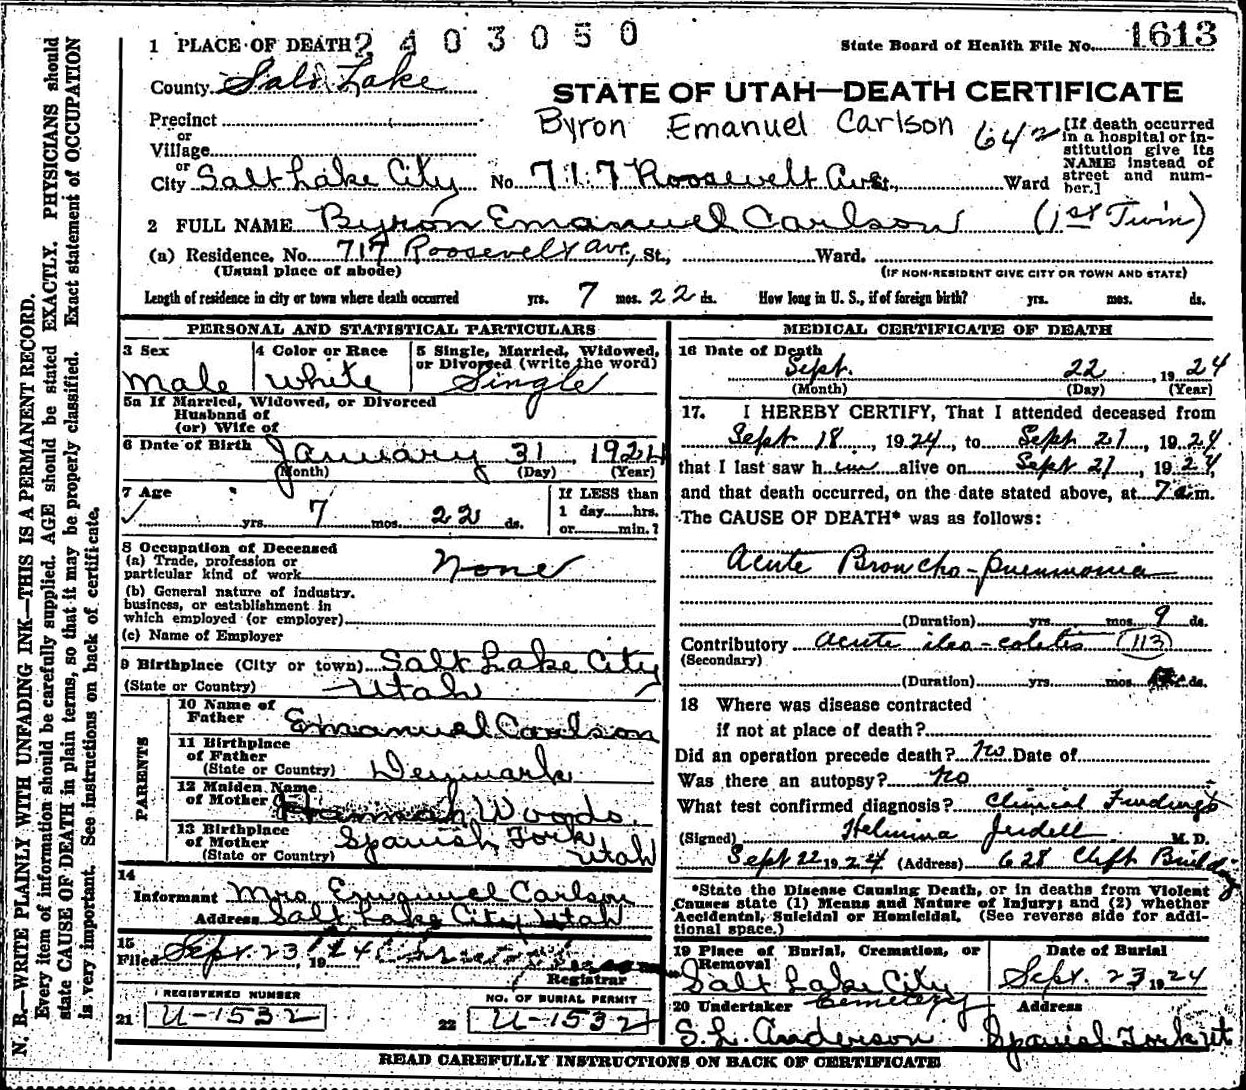 1 PLACE OF DEATH 2403050
State Board of Health File No. 1613
County Salt Lake
STATE OF UTAH—DEATH CERTIFICATE
Precinct
or
Village
Byron Emanuel Carlson 642
[If death occurred in a hospital or institution give its NAME instead of street and number.]
or
City Salt Lake City No. 717 Roosevelt Ave. St., Ward
2 FULL NAME Byron Emanuel Carlson (1st Twin)
(a) Residence, No. 717 Roosevelt Ave., St., Ward.
(Usual place of abode) (IF NON-RESIDENT GIVE CITY OR TOWN AND STATE)
Length of residence in city or town where death occurred yrs. 7 mos. 22 ds. How long in U. S., if of foreign birth? yrs. mos. ds.
PERSONAL AND STATISTICAL PARTICULARS
3 Sex
male
4 Color or Race
White
5 Single, Married, Widowed, or Divorced (write the word)
Single
5a If Married, Widowed, or Divorced
Husband of
(or) Wife of
6 Date of Birth January 31, 1924
(Month) (Day) (Year)
7 Age
yrs. 7 mos. 22 ds.
If LESS than
1 day hrs.
or min.?
8 Occupation of Deceased
(a) Trade, profession or
particular kind of work None
(b) General nature of industry,
business, or establishment in
which employed (or employer)
(c) Name of Employer
9 Birthplace (City or town) Salt Lake City
(State or Country) Utah
PARENTS
10 Name of
Father Emanuel Carlson
11 Birthplace
of Father
(State or Country) Denmark
12 Maiden Name
of Mother Hannah Woods
13 Birthplace
of Mother
(State or Country) Spanish Fork Utah
14
Informant Mrs Emanuel Carlson
Address Salt Lake City Utah
15
Filed Sept. 23, 1924
Registrar
REGISTERED NUMBER
21 U-1532
NO. OF BURIAL PERMIT
22 U-1532
MEDICAL CERTIFICATE OF DEATH
16 Date of Death
Sept. 22, 1924
(Month) (Day) (Year)
17. I HEREBY CERTIFY, That I attended deceased from
Sept 18, 1924, to Sept 21, 1924.
that I last saw him alive on Sept 21, 1924,
and that death occurred, on the date stated above, at 7 a.m.
The CAUSE OF DEATH* was as follows:
Acute Broncho-pneumonia
(Duration) yrs. mos. 9 ds.
Contributory Acute ileo-colitis (113)
(Secondary)
(Duration) yrs. mos. ds.
18 Where was disease contracted
if not at place of death?
Did an operation precede death? No Date of
Was there an autopsy? no
What test confirmed diagnosis? Clinical Findings
(Signed) Helmina Jeidell M. D.
Sept 22, 1924 (Address) 628 Clift Building
*State the Disease Causing Death, or in deaths from Violent
Causes state (1) Means and Nature of Injury; and (2) whether
Accidental, Suicidal or Homicidal. (See reverse side for addi-
tional space.)
19 Place of Burial, Cremation, or
Removal
Salt Lake City
Cemetery
Date of Burial
Sept. 23 1924
20 Undertaker
S. L. Anderson
Address
Spanish Fork Ut
READ CAREFULLY INSTRUCTIONS ON BACK OF CERTIFICATE
N. B.—WRITE PLAINLY WITH UNFADING INK—THIS IS A PERMANENT RECORD.
Every item of information should be carefully supplied. AGE should be stated EXACTLY. PHYSICIANS should
state CAUSE OF DEATH in plain terms, so that it may be properly classified. Exact statement of OCCUPATION
is very important. See instructions on back of certificate.